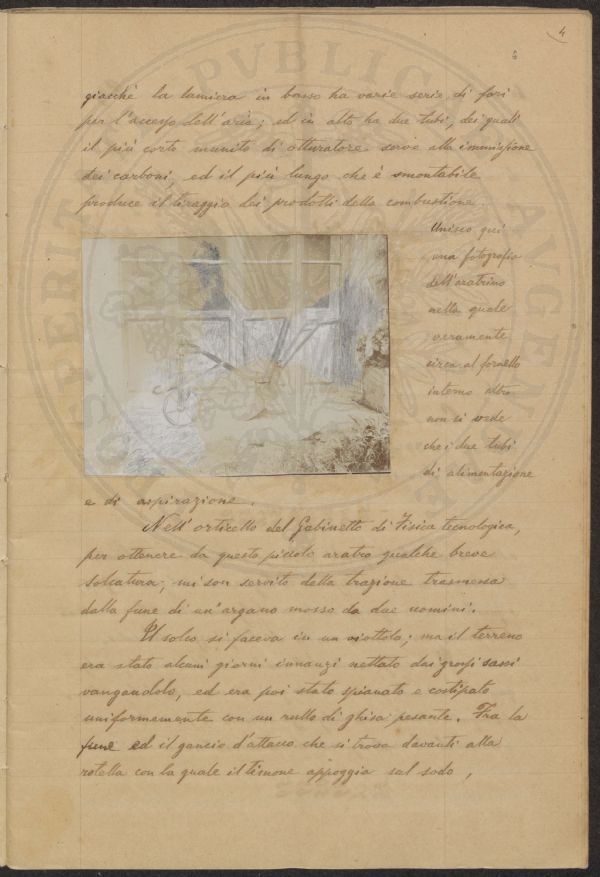 4
6
giacchè la lamiera in basso ha varie serie di fori
per l'accesso dell'aria; ed in alto ha due tubi, dei quali
il più corto munito di otturatore serve alla immissione
dei carboni, ed il più lungo che è smontabile
produce il tiraggio dei prodotti della combustione.
Unisco qui
una fotografia
dell'aratrino
nella quale
veramente
circa al fornello
interno altro
non si vede
che i due tubi
di alimentazione
e di aspirazione.
Nell'orticello del Gabinetto di Fisica tecnologica,
per ottenere da questo piccolo aratro qualche breve
solcatura, mi son servito della trazione trasmessa
dalla fune di un'argano mosso da due uomini.
Il solco si faceva in un viottolo; ma il terreno
era stato alcuni giorni innanzi nettato dai grossi sassi
vangandolo, ed era poi stato spianato e costipato
uniformemente con un rullo di ghisa pesante. Fra la
fune ed il gancio d'attacco che si trova davanti alla
rotella con la quale il timone appoggia sul sodo,
PVBLICA
AVGENDA